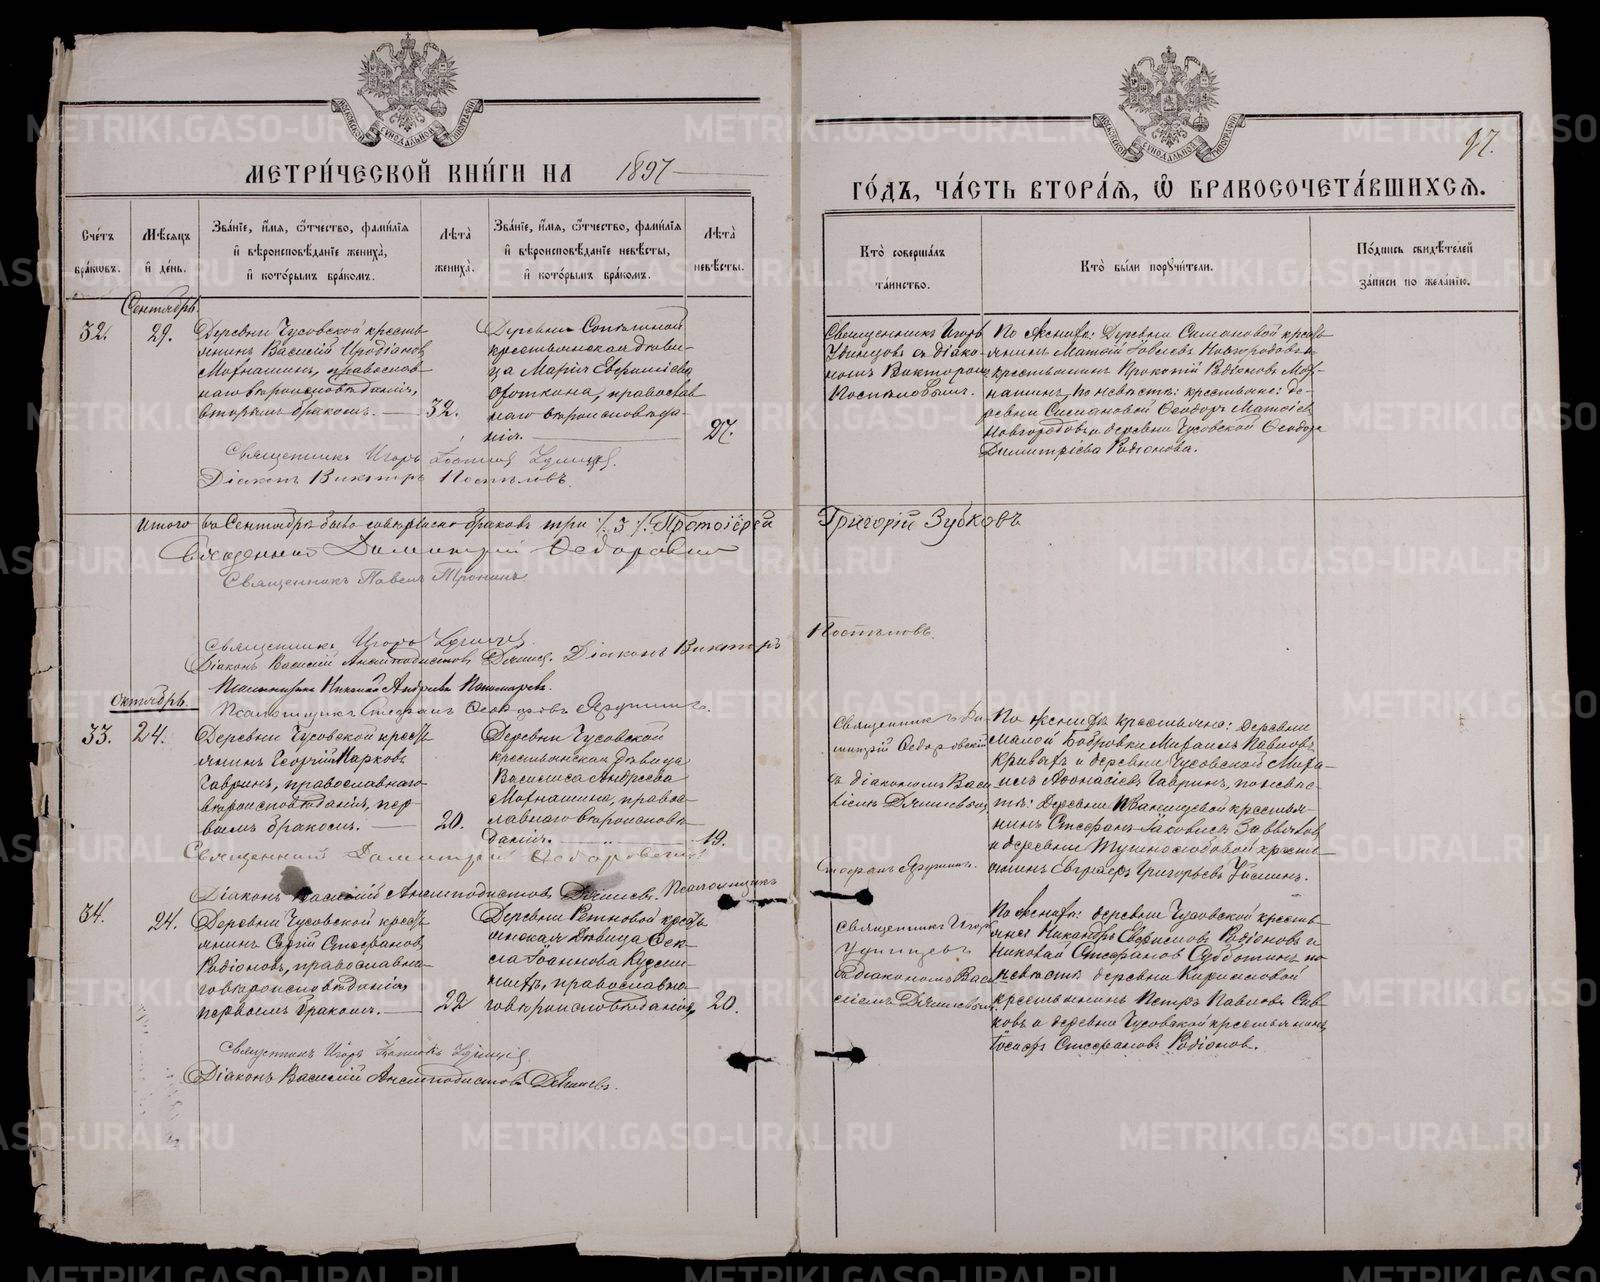 МЕТРИ́ЧЕСКОЙ КНИ́ГИ НА 1897
ГО́ДЪ, ЧА́СТЬ ВТОРА́Я, Ѽ БРАКОСОЧЕТА́ВШИХСЯ.
97.
Сче́тъ бра́ковъ.
Мѣ́сяцъ и҆ де́нь.
Зва́нїе, и҆́мя, ѻ҆́тчество, фами́лїя
и҆ вѣроисповѣ́данїе жениха̀,
и҆ кото́рымъ бра́комъ.
Лѣта̀ жениха̀.
Зва́нїе, и҆́мя, ѻ҆́тчество, фами́лїя
и҆ вѣроисповѣ́данїе невѣ́сты,
и҆ кото́рымъ бра́комъ.
Лѣта̀ невѣ́сты.
Кто̀ соверша́лъ
та́инство.
Кто̀ бы́ли порꙋчи́тели.
По́дпись свидѣ́телей
за́писи по жела́нїю.
Сентябрь.
32.
29.
Деревни Чусовской кресть-
янинъ Василій Иродіоновъ
Махнашинъ, православ-
наго вѣроисповѣданія,
вторымъ бракомъ.
32.
Деревни
крестьянская дѣви-
ца Марія
православ
наго вѣроисповѣда-
нія.
27.
Священникъ Игорь
Удинцовъ съ діако-
номъ Викторомъ
Поспѣловымъ.
По женихѣ: Деревни Симановой кресть-
янинъ Матѳій Новгородовъ и
крестьянинъ Прокопій Родіоновъ Мах-
нашинъ, по невѣстѣ: крестьяне: де-
ревни Симановой Ѳеодоръ Матѳіевъ
Новгородовъ и деревни Чусовской Ѳеодоръ
Димитріевъ Родіоновъ.
Священникъ Игорь Удинцевъ.
Діаконъ Викторъ Поспѣловъ.
Итого въ Сентябрѣ было совершено браковъ три /. 3 /. Протоіерей Григорій Зубковъ
Священникъ Димитрій Ѳедоровскій
Священникъ Павелъ Пронинъ
Священникъ Игорь Удинцевъ.
Діаконъ Василій Анемподистовъ Дягилевъ. Діаконъ Викторъ Поспѣловъ.
Псаломщикъ Николай Андреевъ Пономаревъ.
Псаломщикъ Стефанъ Ѳеодоровъ Ярушинъ.
Октябрь.
33.
24.
Деревни Чусовской кресть-
янинъ Георгій Марковъ
Гавринъ, православнаго
вѣроисповѣданія, пер-
вымъ бракомъ.
20.
Деревни Чусовской
крестьянская дѣвица
Василиса Андреева
Махнашина, право-
славнаго вѣроисповѣ-
данія.
19.
Священникъ Ди-
митрій Ѳедоровскій
съ діакономъ Васи-
ліемъ Дягилевымъ
По женихѣ крестьяне: деревни
малой Бобровки Михаилъ Павловъ
и деревни Чусовской Миха-
илъ Аѳонасіевъ Гавринъ, по невѣс-
тѣ: Деревни крестья-
нинъ Стефанъ Іаковлевъ Завьяловъ
и деревни кресть-
янинъ Григорьевъ
Священникъ Димитрій Ѳедоровскій
Діаконъ Василій Анемподистовъ Дягилевъ. Псаломщикъ Стефанъ Ярушинъ.
34.
24.
Деревни Чусовской кресть-
янинъ Сергій Стефановъ
Родіоновъ, православна-
го вѣроисповѣданія,
первымъ бракомъ.
22
Деревни Рѣтновой кресть-
янская дѣвица Ѳек-
ла Іоаннова Кузми-
ныхъ, православна-
го вѣроисповѣданія,
20.
Священникъ Игорь
Удинцевъ
съ діакономъ Васи-
ліемъ Дягилевымъ
По женихѣ: деревни Чусовской кресть-
яне Никандръ Родіоновъ и
Николай Стефановъ Субботинъ, по
невѣстѣ деревни Кирилловой
крестьянинъ Петръ Павловъ Сив-
ковъ и деревни Чусовской крестьянинъ
Іосифъ Стефановъ Родіонов.
Священникъ Игорь Удинцевъ
Діаконъ Василій Анемподистовъ Дягилевъ.
METRIKI.GASO-URAL.RU